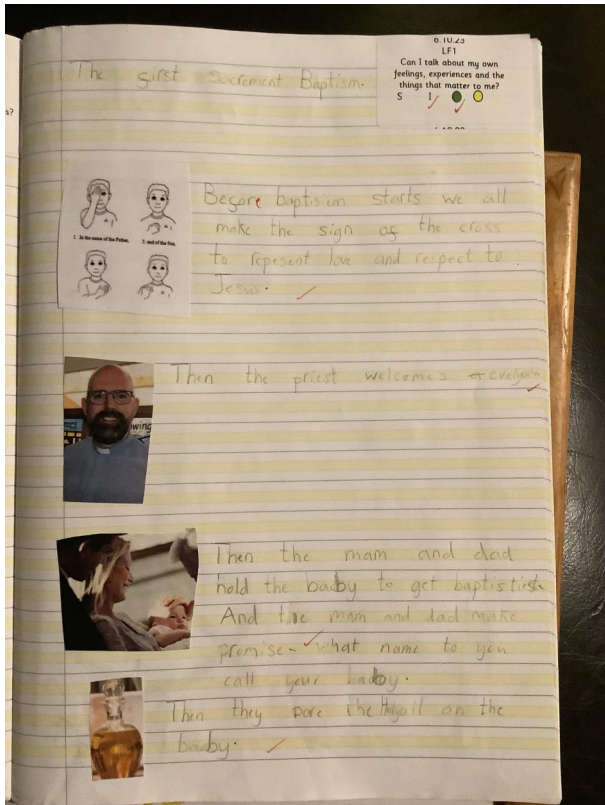 s?
6.10.23
LF1
Can I talk about my own
feelings, experiences and the
things that matter to me?
S I
The first Sacrement Baptism.
1. In the name of the Father,
2. and of the Son,
Before baptisiem starts we all
make the sign of the cross
to repesent love and respect to
Jesus.
Then the priest welcomes
owing
Then the mam and dad
hold the badby to get
And the mam and dad make
promise - what name to you
call your badby.
Then they pore the Holy oil on the
badby.